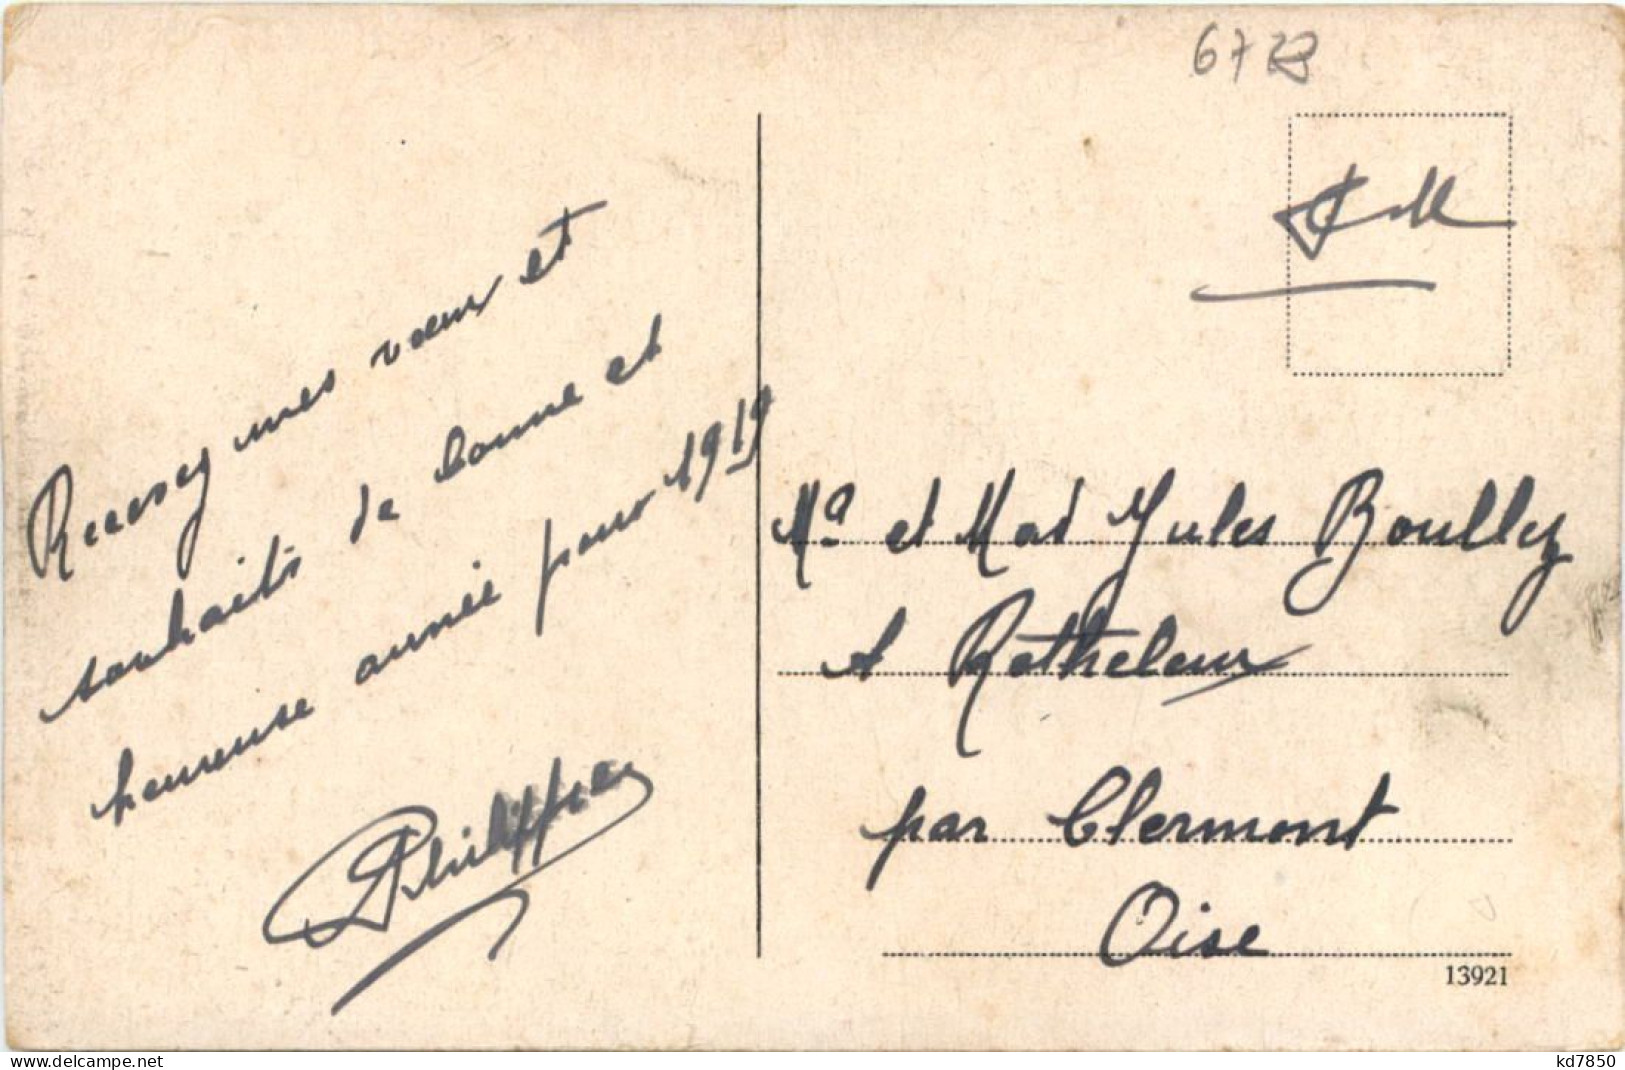 6728
FM
Recevez mes vœux et
souhaits de bonne et
heureuse année pour 1919
Mr et Mad Jules Boulley
A Rotheleux
par Clermont
Oise
13921
www.delcampe.net
kd7850